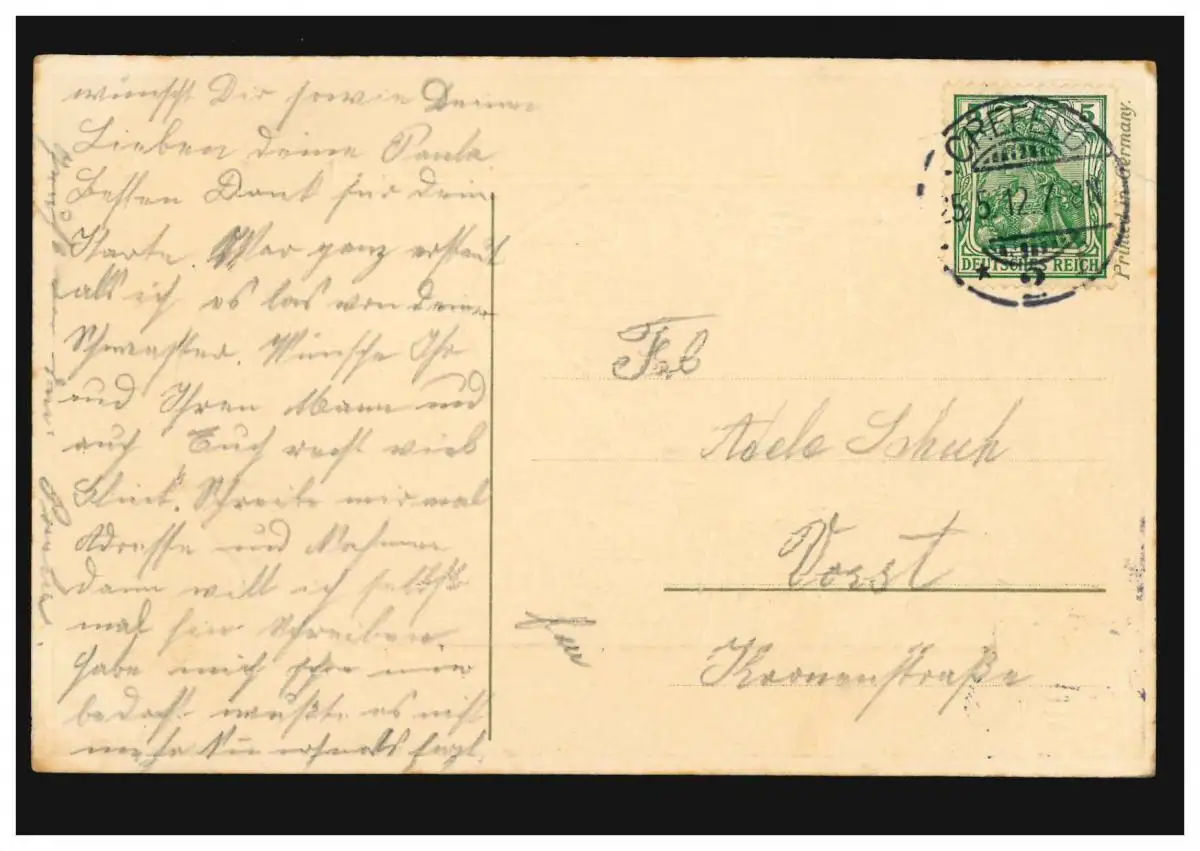 wünscht Dir sowie Deinen
Lieben deine Paula
Besten Dank für dein
Karte. War ganz erstaut
als ich es las von deiner
Schwester. Wünsche Ihr
und Ihren Mann und
auch Euch recht viel
Glück. Schreibe mir mal
Adresse und
dann will ich selbst
mal hin schreiben.
habe mich schon
bedacht wußte es nicht
mehr
5
CREFELD
5.5.12.7-8N
* 5
DEUTSCHES REICH
Printed in Germany.
Frl
Adele Schuh
Vorst
Kronenstraße